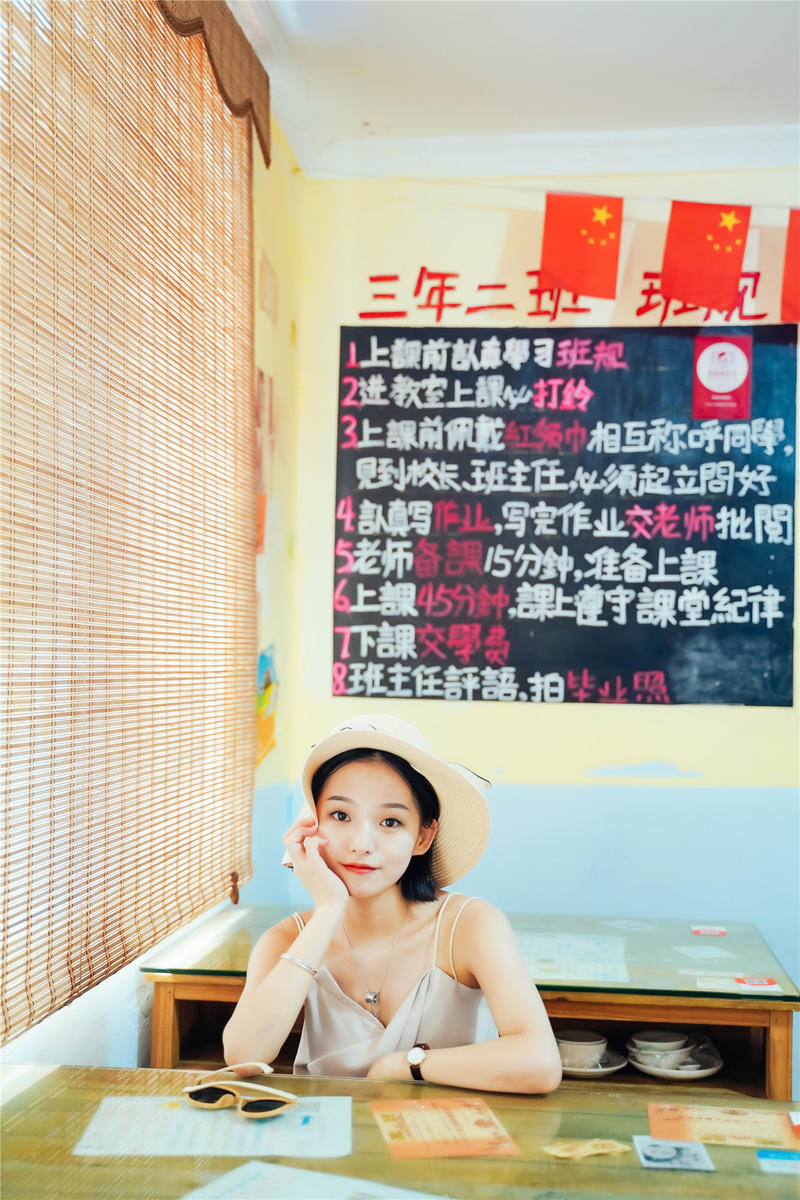 三年二班 班规
1上課前認真學习班规
2进教室上課必打鈴
3上課前佩戴红领巾相互称呼同學,
見到校长、班主任,必須起立問好
4認真写作业,写完作业交老师批閱
5老师备課15分鈡,准备上課
6上課45分鈡,課上遵守課堂紀律
7下課交學费
8班主任評語,拍毕业照